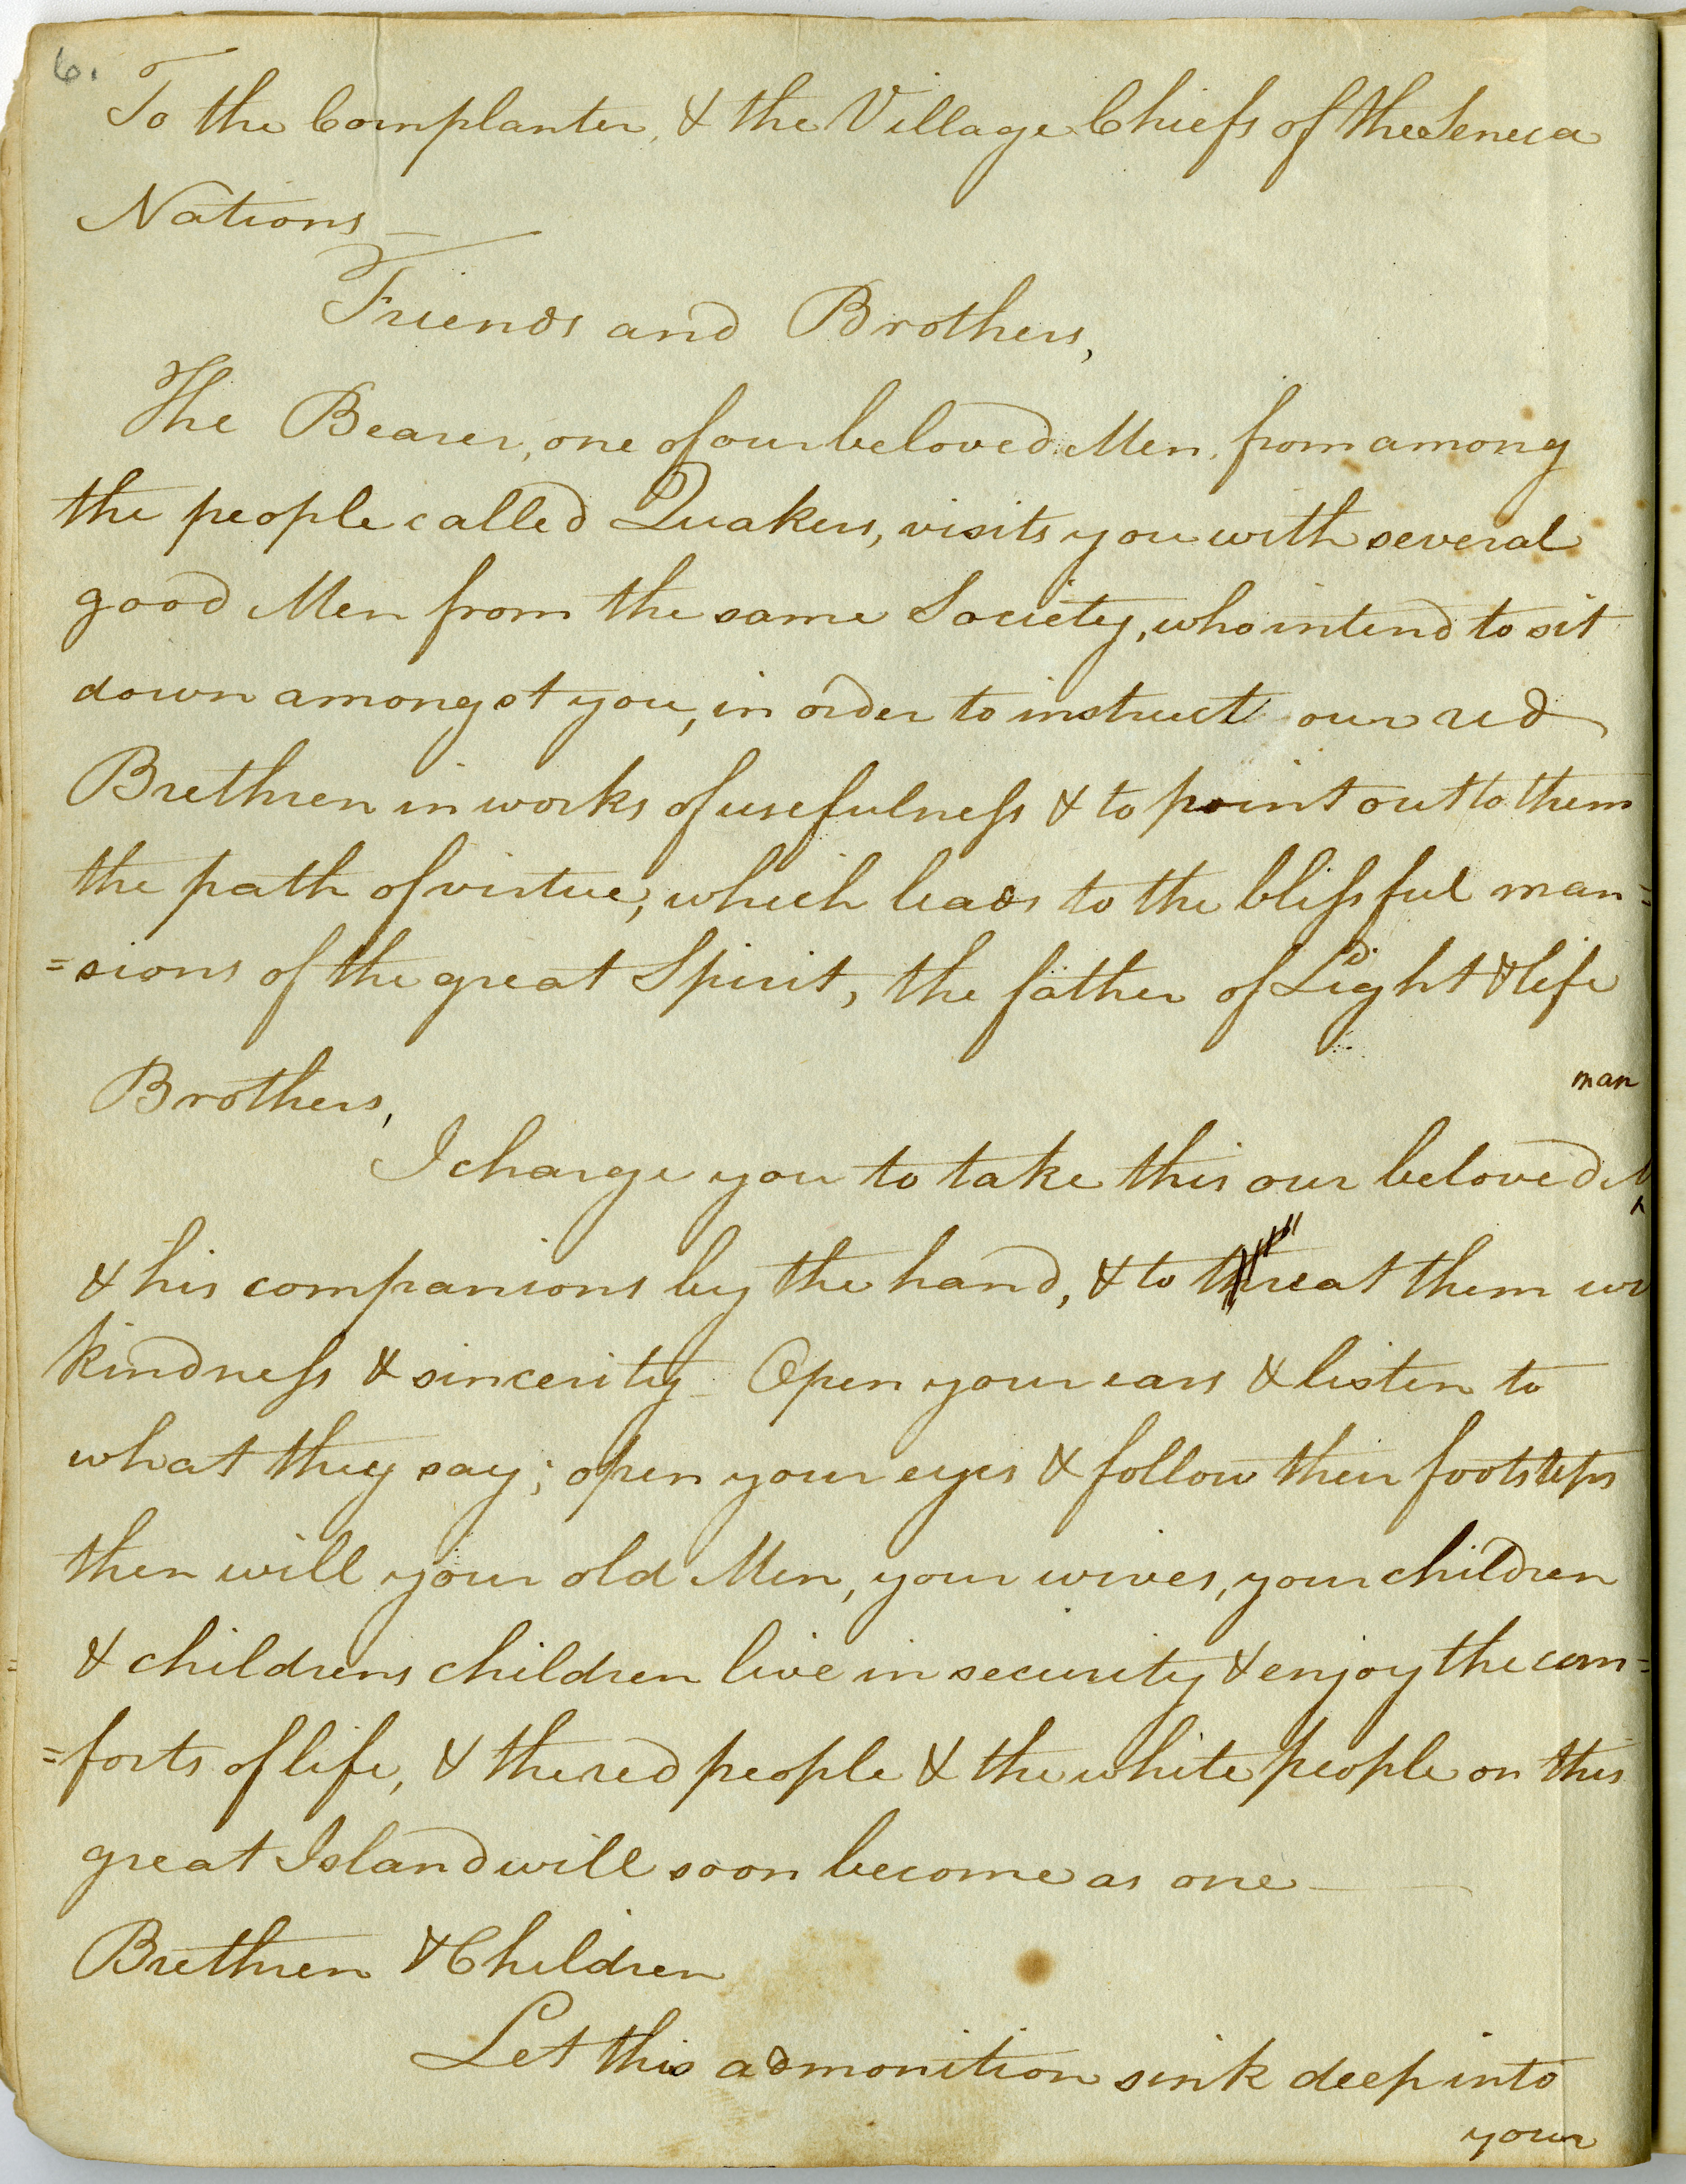 6.
To the Cornplanter, & the Village Chiefs of the Seneca
Nations —
Friends and Brothers,
The Bearer, one of our beloved Men, from among
the people called Quakers, visits you with several
good Men from the same Society, who intend to sit
down amongst you, in order to instruct our red
Brethren in works of usefulneſs & to point out to them
the path of virtue, which leads to the bliſsful man=
=sions of the great Spirit, the father of Light & life
Brothers,
man
I charge you to take this our beloved M
& his companions by the hand, & to threat them wi
kindneſs & sincerity — Open your ears & listen to
what they say; open your eyes & follow their footsteps
then will your old Men, your wives, your children
& childrens children live in security & enjoy the com=
=forts of life, & the red people & the white people on this
great Island will soon become as one —
Brethren & Children
Let this admonition sink deep into
your